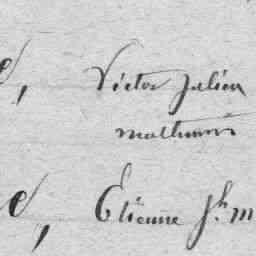 e, Victor Julien
mathurin
e, Etienne Jh. m